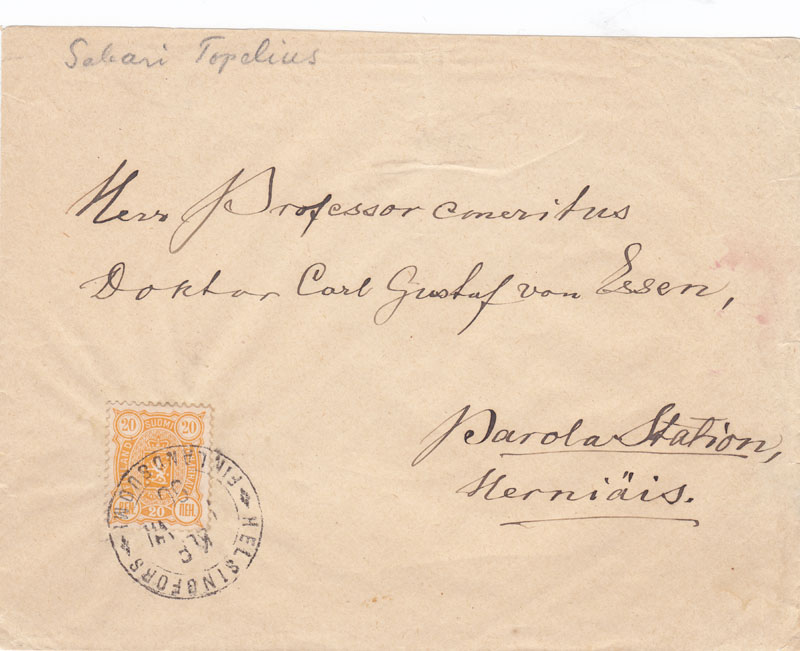 Sakari Topelius
Herr Professor emeritus
Doktor Carl Gustaf von Essen,
Parola Station,
Herniäis.
20 SUOMI 20
20 ПЕН.
HELSINGFORS
FINLAND SUOMI